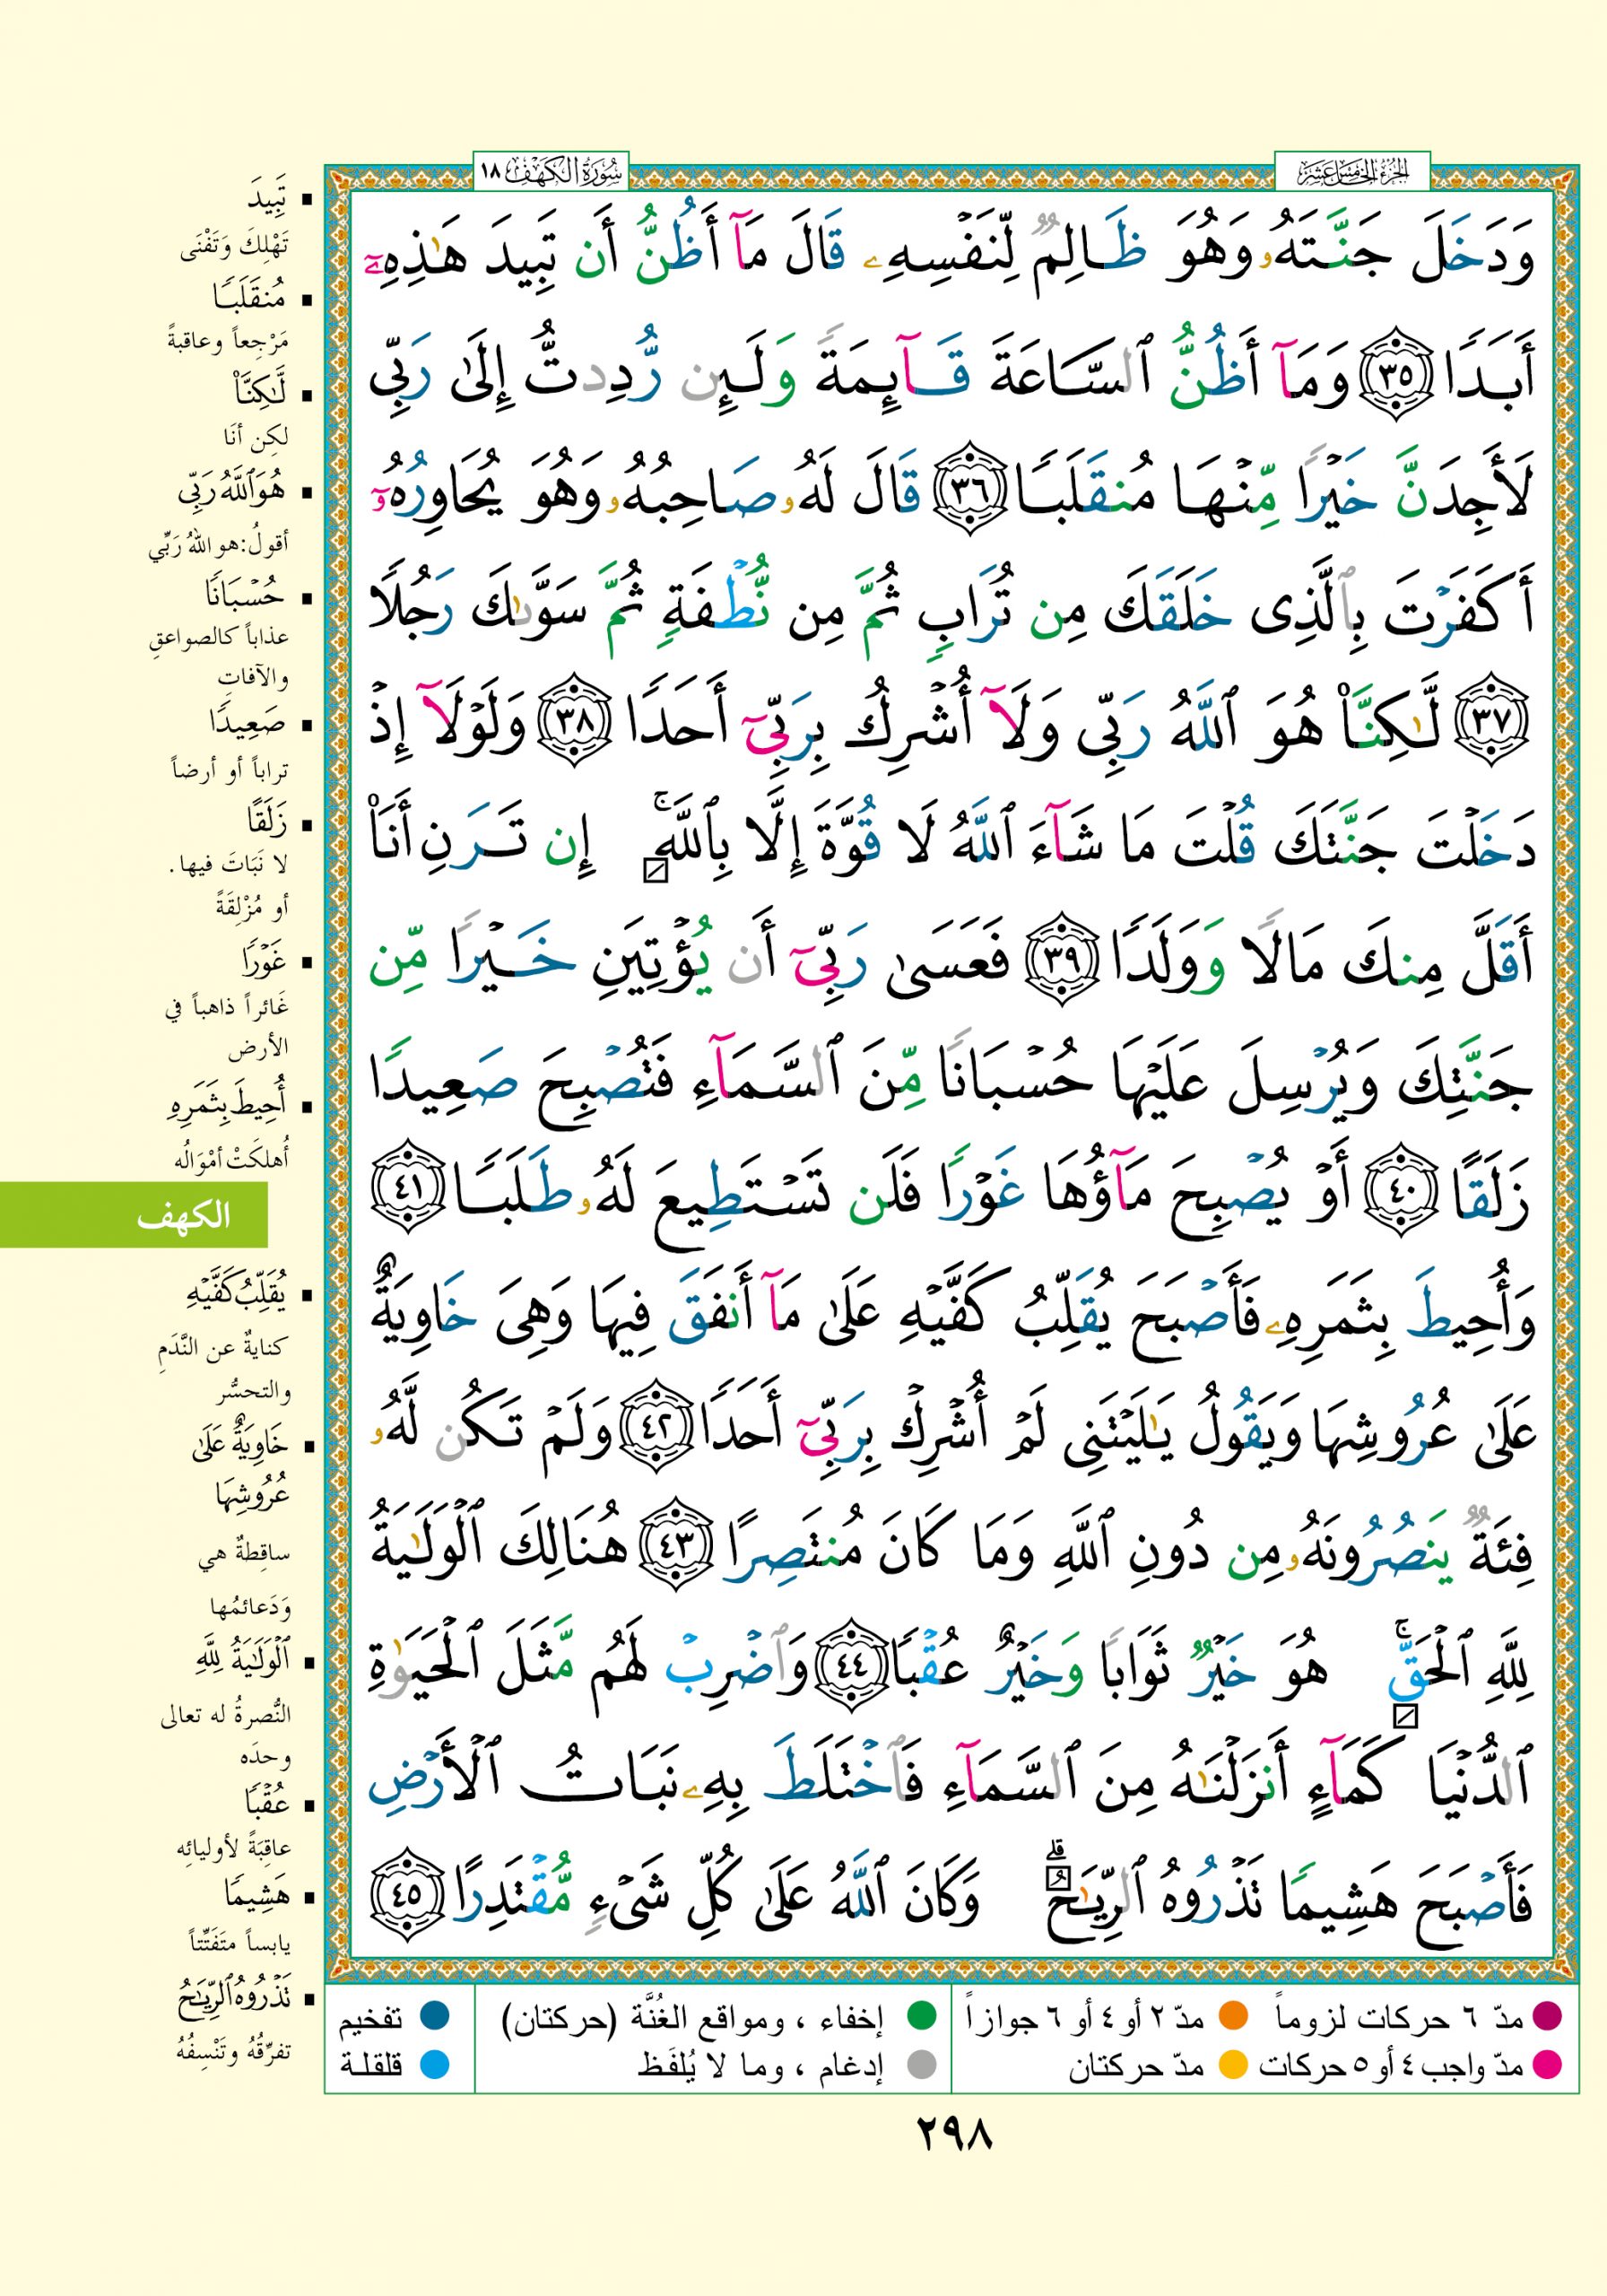 الجزء الخامس عشر
سورة الكهف ١٨
وَدَخَلَ جَنَّتَهُۥ وَهُوَ ظَالِمٌ لِّنَفْسِهِۦ قَالَ مَآ أَظُنُّ أَن تَبِيدَ هَٰذِهِۦٓ
أَبَدًا ٣٥ وَمَآ أَظُنُّ ٱلسَّاعَةَ قَآئِمَةً وَلَئِن رُّدِدتُّ إِلَىٰ رَبِّى
لَأَجِدَنَّ خَيْرًا مِّنْهَا مُنقَلَبًا ٣٦ قَالَ لَهُۥ صَاحِبُهُۥ وَهُوَ يُحَاوِرُهُۥٓ
أَكَفَرْتَ بِٱلَّذِى خَلَقَكَ مِن تُرَابٍ ثُمَّ مِن نُّطْفَةٍ ثُمَّ سَوَّىٰكَ رَجُلًا
٣٧ لَّٰكِنَّا۠ هُوَ ٱللَّهُ رَبِّى وَلَآ أُشْرِكُ بِرَبِّىٓ أَحَدًا ٣٨ وَلَوْلَآ إِذْ
دَخَلْتَ جَنَّتَكَ قُلْتَ مَا شَآءَ ٱللَّهُ لَا قُوَّةَ إِلَّا بِٱللَّهِ ۚ إِن تَرَنِ أَنَا۠
أَقَلَّ مِنكَ مَالًا وَوَلَدًا ٣٩ فَعَسَىٰ رَبِّىٓ أَن يُؤْتِيَنِ خَيْرًا مِّن
جَنَّتِكَ وَيُرْسِلَ عَلَيْهَا حُسْبَانًا مِّنَ ٱلسَّمَآءِ فَتُصْبِحَ صَعِيدًا
زَلَقًا ٤٠ أَوْ يُصْبِحَ مَآؤُهَا غَوْرًا فَلَن تَسْتَطِيعَ لَهُۥ طَلَبًا ٤١
وَأُحِيطَ بِثَمَرِهِۦ فَأَصْبَحَ يُقَلِّبُ كَفَّيْهِ عَلَىٰ مَآ أَنفَقَ فِيهَا وَهِىَ خَاوِيَةٌ
عَلَىٰ عُرُوشِهَا وَيَقُولُ يَٰلَيْتَنِى لَمْ أُشْرِكْ بِرَبِّىٓ أَحَدًا ٤٢ وَلَمْ تَكُن لَّهُۥ
فِئَةٌ يَنصُرُونَهُۥ مِن دُونِ ٱللَّهِ وَمَا كَانَ مُنتَصِرًا ٤٣ هُنَالِكَ ٱلْوَلَٰيَةُ
لِلَّهِ ٱلْحَقِّ ۚ هُوَ خَيْرٌ ثَوَابًا وَخَيْرٌ عُقْبًا ٤٤ وَٱضْرِبْ لَهُم مَّثَلَ ٱلْحَيَوٰةِ
ٱلدُّنْيَا كَمَآءٍ أَنزَلْنَٰهُ مِنَ ٱلسَّمَآءِ فَٱخْتَلَطَ بِهِۦ نَبَاتُ ٱلْأَرْضِ
فَأَصْبَحَ هَشِيمًا تَذْرُوهُ ٱلرِّيَٰحُ ۗ وَكَانَ ٱللَّهُ عَلَىٰ كُلِّ شَىْءٍ مُّقْتَدِرًا ٤٥
▪ تَبِيدَ
تَهْلِكَ وَتَفْنَى
▪ مُنقَلَبًا
مَرْجِعاً وعاقبةً
▪ لَّٰكِنَّا۠
لكِن أنَا
▪ هُوَ ٱللَّهُ رَبِّى
أقولُ: هو اللهُ رَبِّي
▪ حُسْبَانًا
عذاباً كالصواعقِ
والآفاتِ
▪ صَعِيدًا
تراباً أو أرضاً
▪ زَلَقًا
لا نَبَاتَ فيها.
أو مُزْلِقَةً
▪ غَوْرًا
غَائراً ذاهباً في
الأرض
▪ أُحِيطَ بِثَمَرِهِ
أُهلكَتْ أمْوَالُه
الكهف
▪ يُقَلِّبُ كَفَّيْهِ
كنايةٌ عن النَّدَمِ
والتحسُّر
▪ خَاوِيَةٌ عَلَىٰ
عُرُوشِهَا
ساقِطةٌ هي
وَدَعائمُها
▪ ٱلْوَلَٰيَةُ لِلَّهِ
النُّصرةُ له تعالى
وحدَه
▪ عُقْبًا
عاقِبَةً لأوليائِه
▪ هَشِيمًا
يابساً متَفَتِّتاً
▪ تَذْرُوهُ ٱلرِّيَٰحُ
تفرِّقُهُ وتَنْسِفُهُ
مدّ ٦ حركات لزوماً مدّ ٢ أو ٤ أو ٦ جوازاً إخفاء ، ومواقع الغُنَّة (حركتان) تفخيم
مدّ واجب ٤ أو ٥ حركات مدّ حركتان إدغام ، وما لا يُلفَظ قلقلة
٢٩٨